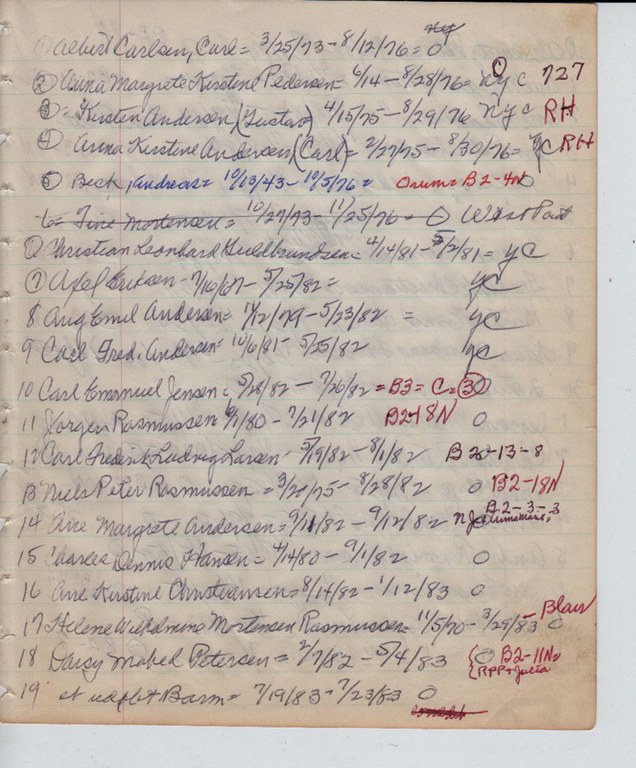 ① Albert Carlsen, Carl = 3/25/73 - 8/12/76 = 0
② Anna Margrete Kirstine Pedersen = 6/14 - 8/28/76 = nyc 727
③ = Kirsten Andersen (Gustav) 4/15/75 - 8/29/76 nyc RH
④ Anna Kirstine Andersen (Carl) = 2/27/75 - 8/30/76 = yc RH
⑤ Beck, Andreas = 10/13/43 - 10/5/76 = Orum = B2-4N 0
6 = Tine Mortensen = 10/27/73 - 11/25/76 = 0 West Part
Christian Leonhard Guldbrandsen = 4/14/81 - 5/2/81 = yc
⑦ Axel Eriksen - 7/16/67 - 5/25/82 = yc
8 Aug Emil Andersen = 11/12/79 - 5/23/82 = yc
9 Carl Fred. Andersen = 10/6/81 - 5/25/82 yc
10 Carl Emmanuel Jensen = 5/28/82 - 7/26/82 = B3 = C = 3 0
11 Jorgen Rasmussen 9/1/80 - 7/21/82 B2-18N 0
12 Carl Frederik Ludvig Larsen - 5/19/82 - 8/1/82 B20-13-8
13 Niels Peter Rasmussen = 3/27/75 - 8/28/82 0 B2-18N
14 Ane Margrete Andersen = 9/11/82 - 9/12/82 B2-3-3
15 Charles Dennis Hansen = 4/14/80 - 9/1/82 0
16 Ane Kirstine Christiansen = 8/14/82 - 1/12/83 0
17 Helene Wilhelmine Mortensen Rasmussen = 11/5/70 - 3/29/83 - Blair 0
18 Daisy Mabel Petersen = 2/7/82 - 5/4/83 0 B2-11No
RPP + Julia
19 et udøbt Barn = 7/19/83 - 7/23/83 0